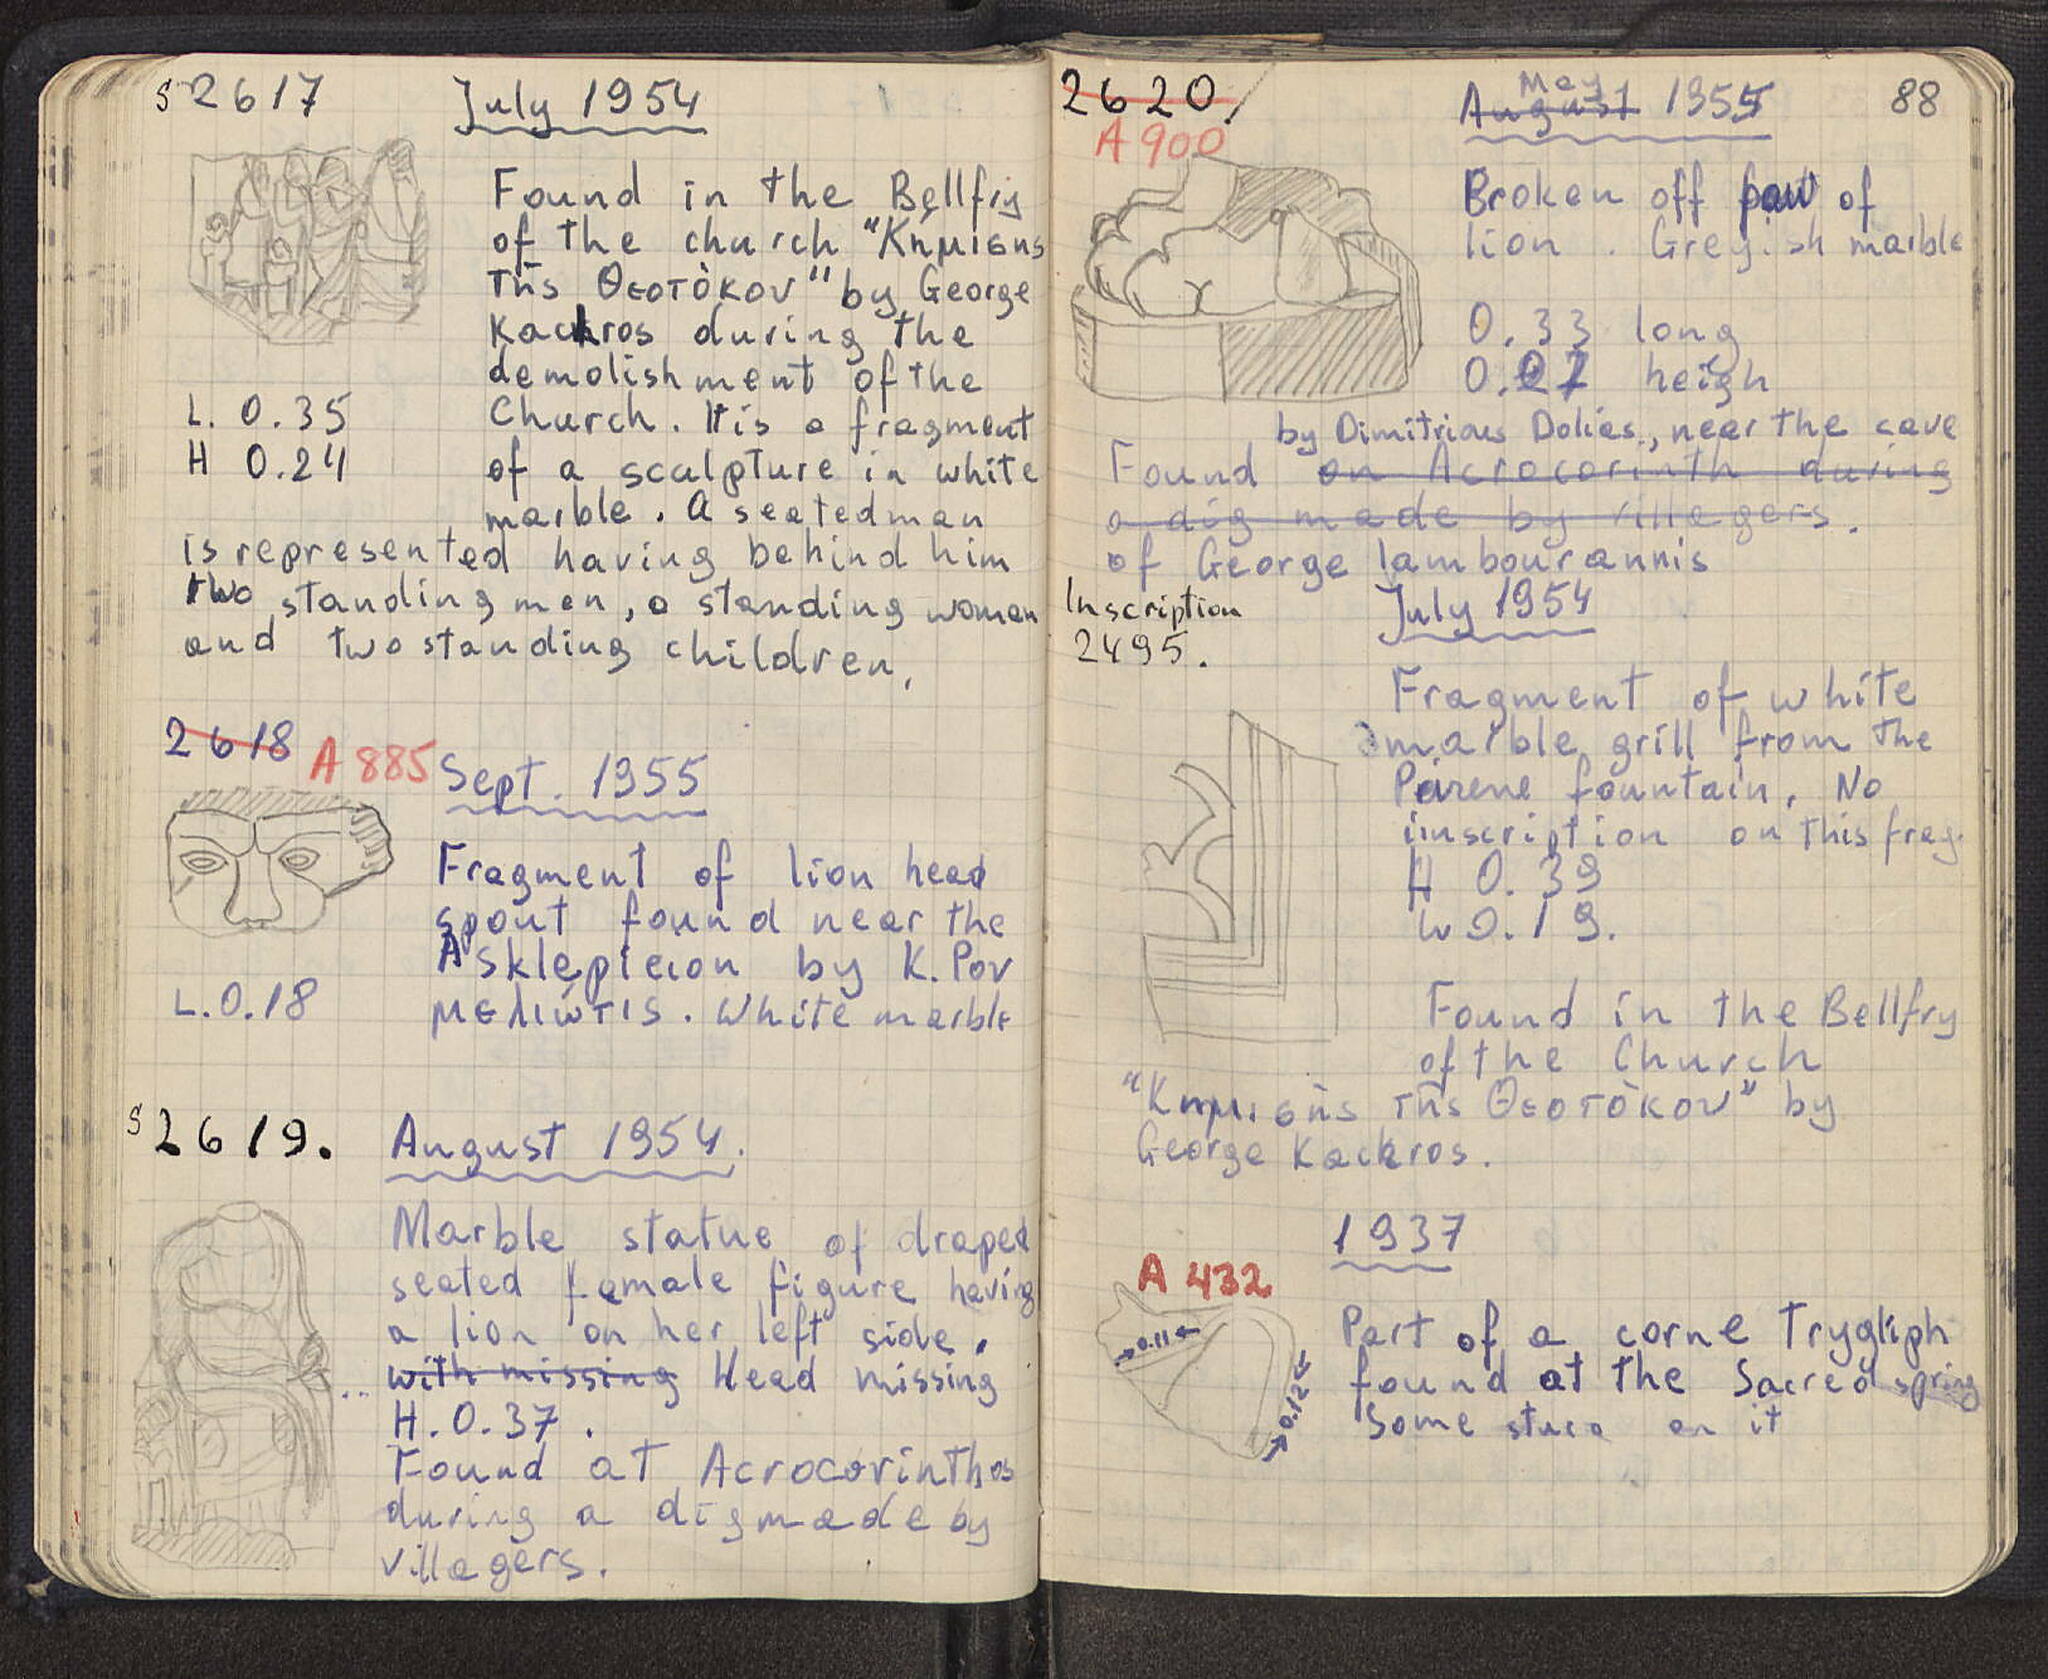 S 2617 July 1954
Found in the Bellfry
of the church "Κημισης
τῆς Θεοτὸκου" by George
Kachros during the
demolishment of the
L. 0.35 Church. It is a fragment
H 0.24 of a sculpture in white
marble. A seated man
is represented having behind him
two standing men, a standing woman
and two standing children,
2618 A 885 Sept. 1955
Fragment of lion head
spout found near the
Asklepieion by K. Ρου
L.0.18 μελιώτις. White marble
S 2619. August 1954.
Marble statue of draped
seated female figure having
a lion on her left side.
with missing Head missing
H.0.37.
Found at Acrocorinthos
during a dig made by
villagers.
2620. May 88
A 900 August 1955
Broken off paw of
lion. Greyish marble
0.33 long
heigh
by Dimitrious Dolies, near the cave
Found on Acrocorinth during
a dig made by villagers.
of George lambourannis
Inscription July 1954
2495.
Fragment of white
marble grill from the
Peirene fountain. No
iinscription on this frag.
H 0.39
W 0.19.
Found in the Bellfry
of the Church
"Κημισὴς τῆς Θεοτὸκου" by
George Kackros.
1937
A 432
0.11
0.12
Part of a corne Trygliph
found at the Sacred spring
Some stuco on it